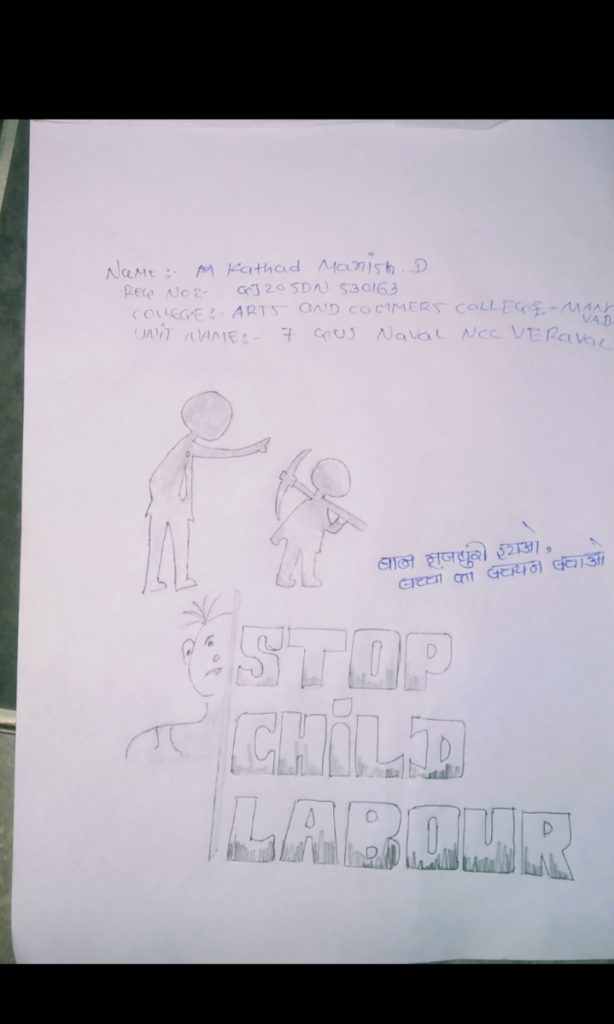 NAME:- M Kathad Manish.D
REG NO:- GJ20SDN 530163
COLLEGE:- ARTS AND COMMERS COLLEGE - MAN
VAD
UNIT NAME:- 7 GUJ Naval NCC VERaval
बाल हटाओ,
बच्चा का बचपन बचाओ
STOP
CHiLD
LABOUR